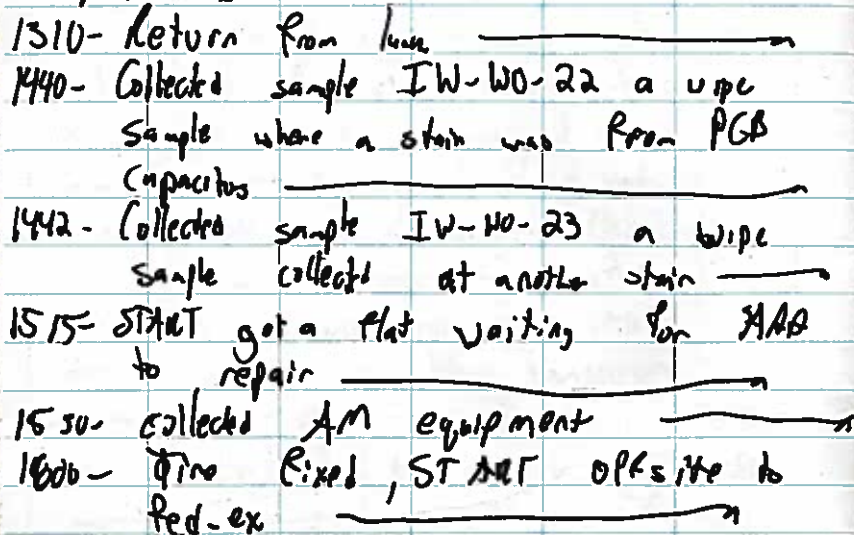 1310- Return from lunch
1440- Collected sample IW-WO-22 a wipe
sample where a stain was from PCB
Capacitors
1442- Collected sample IW-WO-23 a wipe
sample collected at another stain
1515- START got a flat waiting for AAA
to repair
1550- collected AM equipment
1800- Tire fixed, START offsite to
Fed-ex